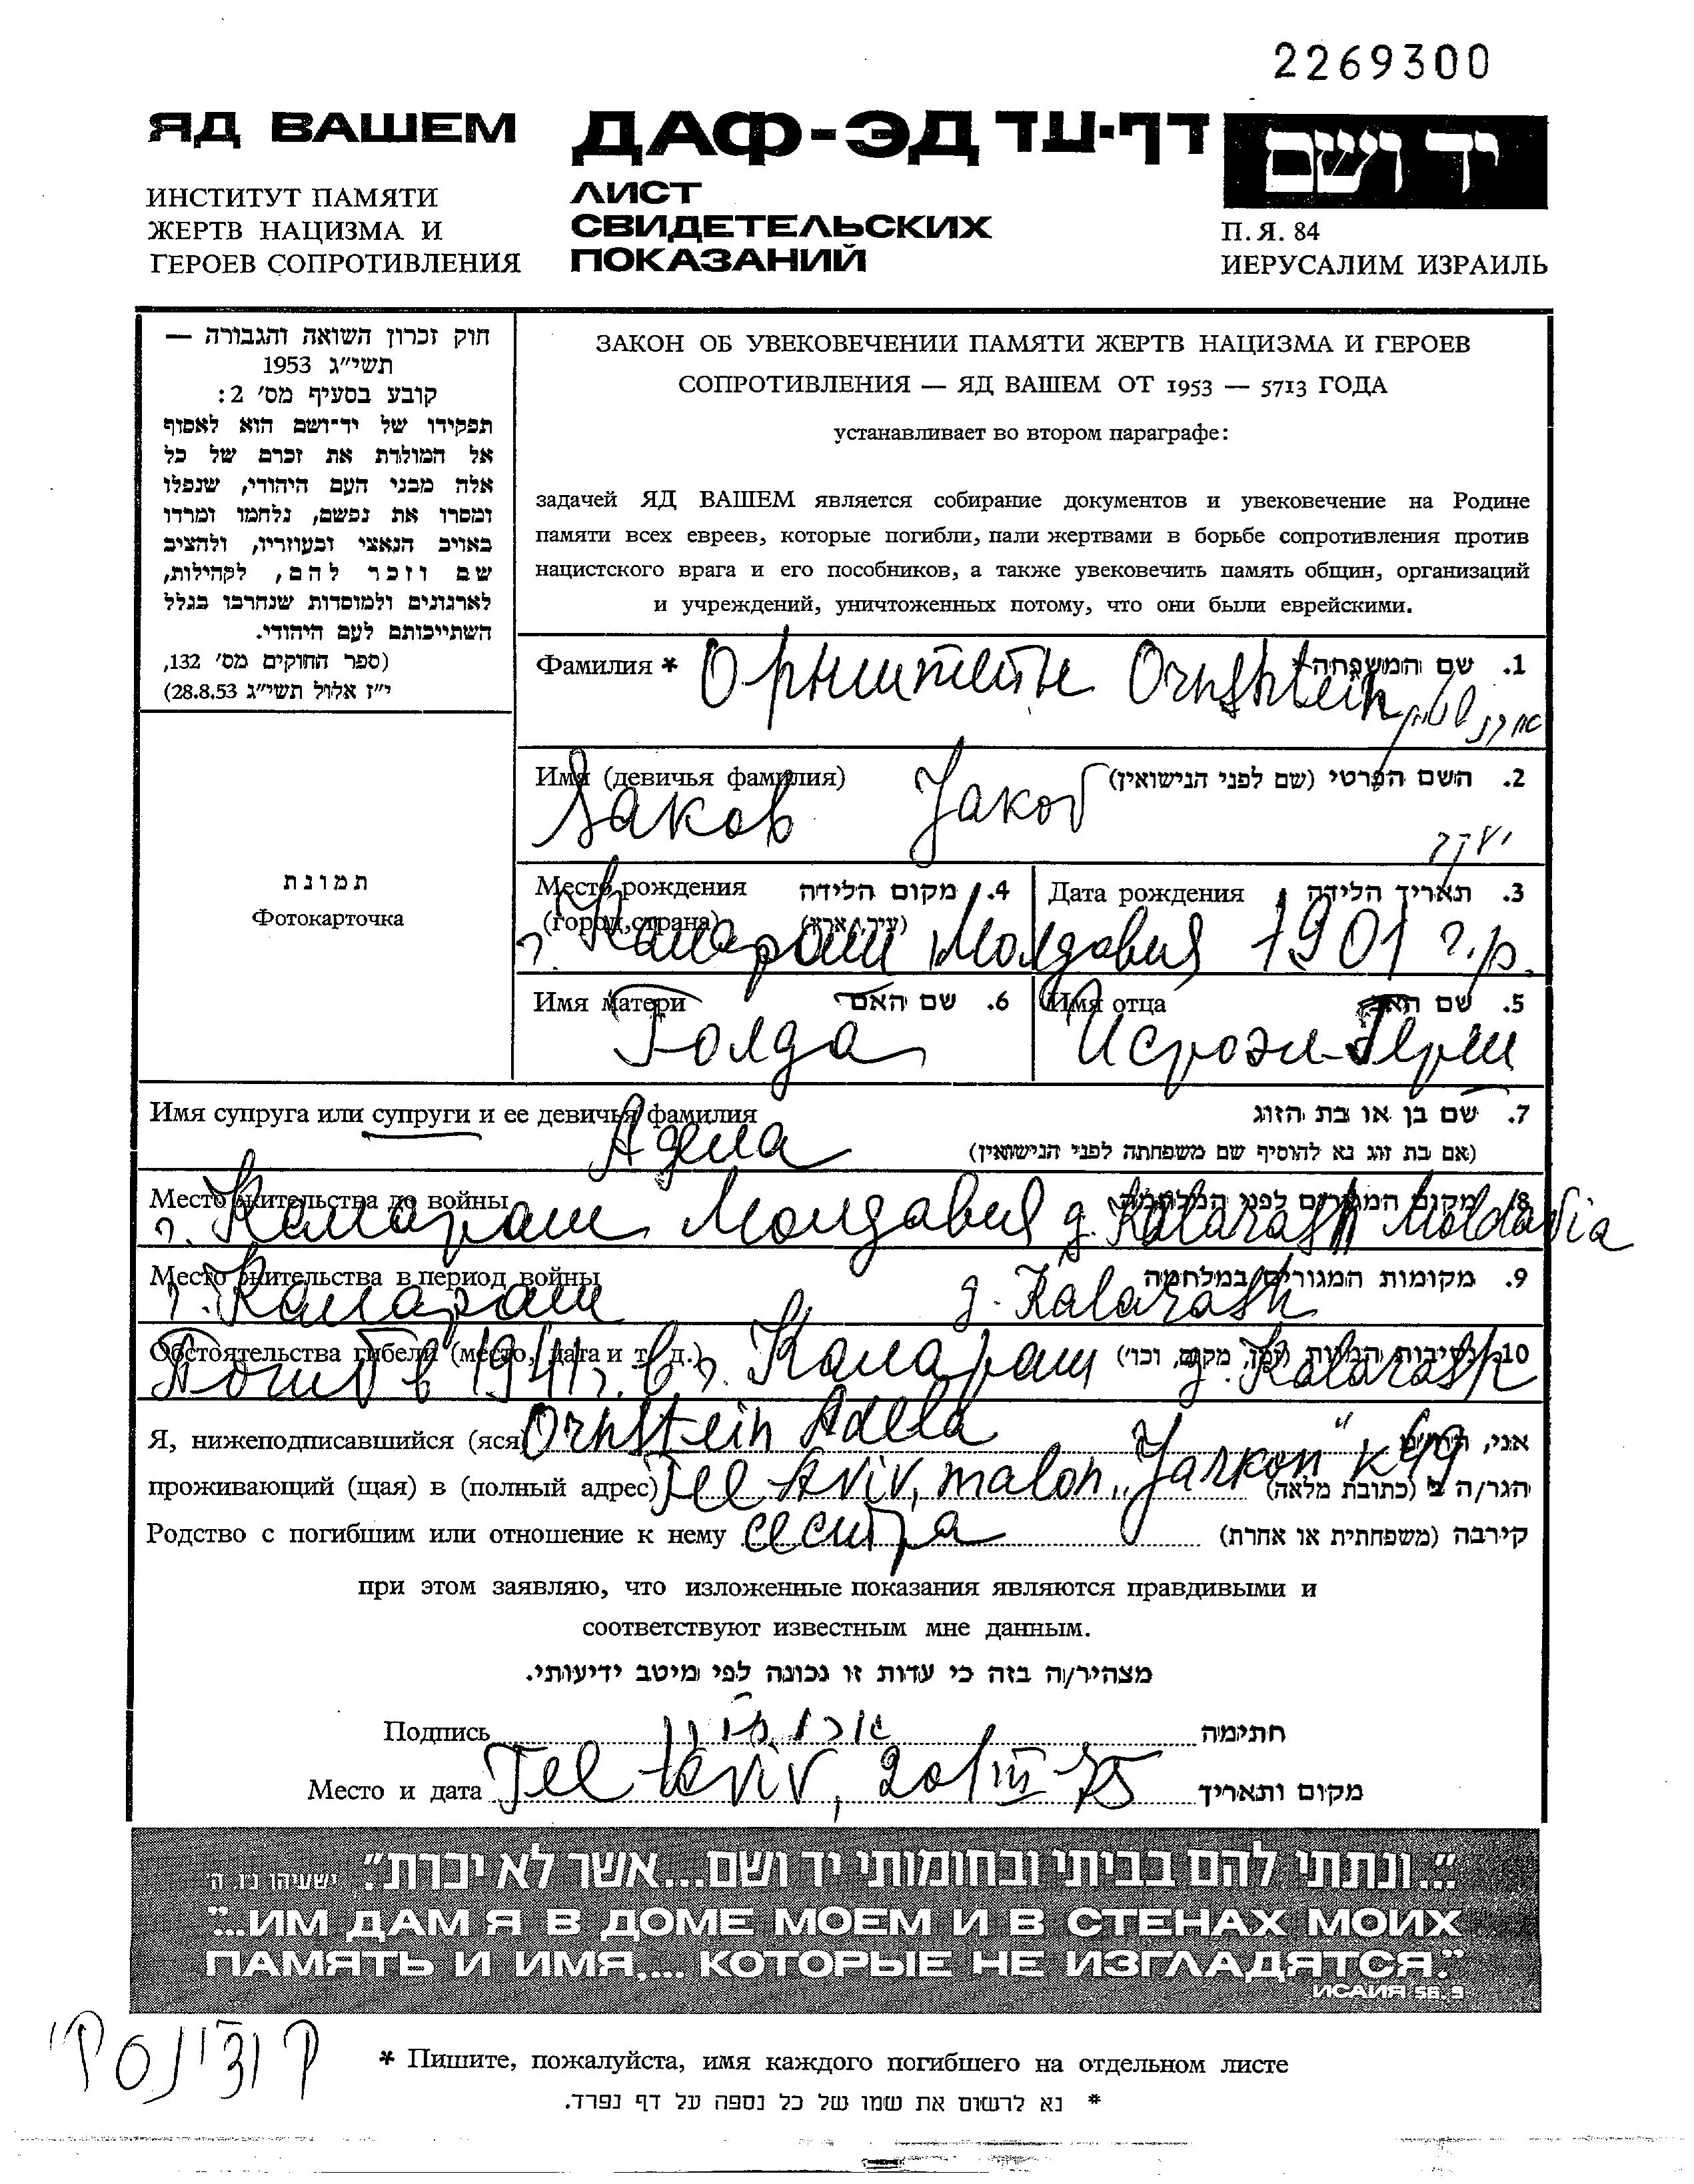 2269300
ЯД ВАШЕМ ДАФ-ЭД דף-עד יד ושם
ИНСТИТУТ ПАМЯТИ
ЖЕРТВ НАЦИЗМА И
ГЕРОЕВ СОПРОТИВЛЕНИЯ
ЛИСТ
СВИДЕТЕЛЬСКИХ
ПОКАЗАНИЙ
П. Я. 84
ИЕРУСАЛИМ ИЗРАИЛЬ
חוק זכרון השואה והגבורה —
תשי״ג 1953
קובע בסעיף מס׳ 2:
תפקידו של יד־ושם הוא לאסוף
אל המולדת את זכרם של כל
אלה מבני העם היהודי, שנפלו
ומסרו את נפשם, נלחמו ומרדו
באויב הנאצי ובעוזריו, ולהציב
שם וזכר להם, לקהילות,
לארגונים ולמוסדות שנחרבו בגלל
השתייכותם לעם היהודי.
(ספר החוקים מס׳ 132,
י״ז אלול תשי״ג 28.8.53)
ЗАКОН ОБ УВЕКОВЕЧЕНИИ ПАМЯТИ ЖЕРТВ НАЦИЗМА И ГЕРОЕВ
СОПРОТИВЛЕНИЯ — ЯД ВАШЕМ ОТ 1953 — 5713 ГОДА
устанавливает во втором параграфе:
задачей ЯД ВАШЕМ является собирание документов и увековечение на Родине
памяти всех евреев, которые погибли, пали жертвами в борьбе сопротивления против
нацистского врага и его пособников, а также увековечить память общин, организаций
и учреждений, уничтоженных потому, что они были еврейскими.
תמונת
Фотокарточка
Фамилия * Орнштейн Ornshtein 1. שם המשפחה*
אורנשטיין
Имя (девичья фамилия) 2. השם הפרטי (שם לפני הנישואין)
Яаков Jakob יעקב
Место рождения 4. מקום הלידה
(город, страна) (עיר, ארץ)
г. Калараш Молдавия
Дата рождения 3. תאריך הלידה
1901 г.р.
Имя матери 6. שם האם
Голда
Имя отца 5. שם האב
Исроэл-Герш
Имя супруга или супруги и ее девичья фамилия 7. שם בן או בת הזוג
Адела (אם בת זוג נא להוסיף שם משפחתה לפני הנישואין)
Место жительства до войны 8. מקום המגורים לפני המלחמה
г. Калараш Молдавия g. Kalarash Moldavia
Место жительства в период войны 9. מקומות המגורים במלחמה
г. Калараш g. Kalarash
Обстоятельства гибели (место, дата и т. д.) 10. נסיבות המות (זמן, מקום, וכו׳)
Погиб в 1941 г. в г. Калараш g. Kalarash
Я, нижеподписавшийся (яся) Ornstein Adela אני, הח״מ
проживающий (щая) в (полный адрес) Tel Aviv, malon „Jarkon" K 49 הגר/ה ב (כתובת מלאה)
Родство с погибшим или отношение к нему сестра קירבה (משפחתית או אחרת)
при этом заявляю, что изложенные показания являются правдивыми и
соответствуют известным мне данным.
מצהיר/ה בזה כי עדות זו נכונה לפי מיטב ידיעותי.
Подпись חתימה
Место и дата Tel Aviv, 20/III-75 מקום ותאריך
"...ונתתי להם בביתי ובחומותי יד ושם...אשר לא יכרת". ישעיהו נ״ו, ה׳
"...ИМ ДАМ Я В ДОМЕ МОЕМ И В СТЕНАХ МОИХ
ПАМЯТЬ И ИМЯ,... КОТОРЫЕ НЕ ИЗГЛАДЯТСЯ."
ИСАИЯ 56, 5
* Пишите, пожалуйста, имя каждого погибшего на отдельном листе
* נא לרשום את שמו של כל נספה על דף נפרד.